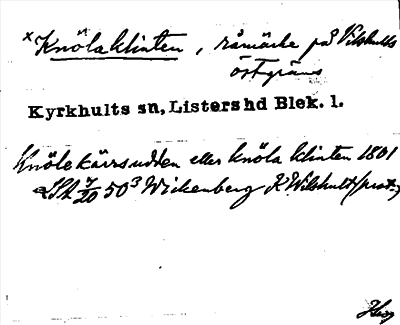 × Knölaklinten, råmärke på Vilshults
östgräns
Kyrkhults sn, Listers hd Blek. l.
Knölekärrsudden eller knöla klinten 1801
LSt 7/20 50³ Wickenberg K Wilshult (prot.)